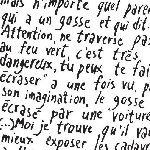 mais n'importe quel pare
qui a un gosse et qui dit
Attention, ne traverse pas
au feu vert, c'est très
dangereux, tu peux te fai
écraser" a une fois vu, p
son imagination, le gosse
écrasé par une voiture
(...) Moi je trouve qu'il va
mieux exposer les cadav